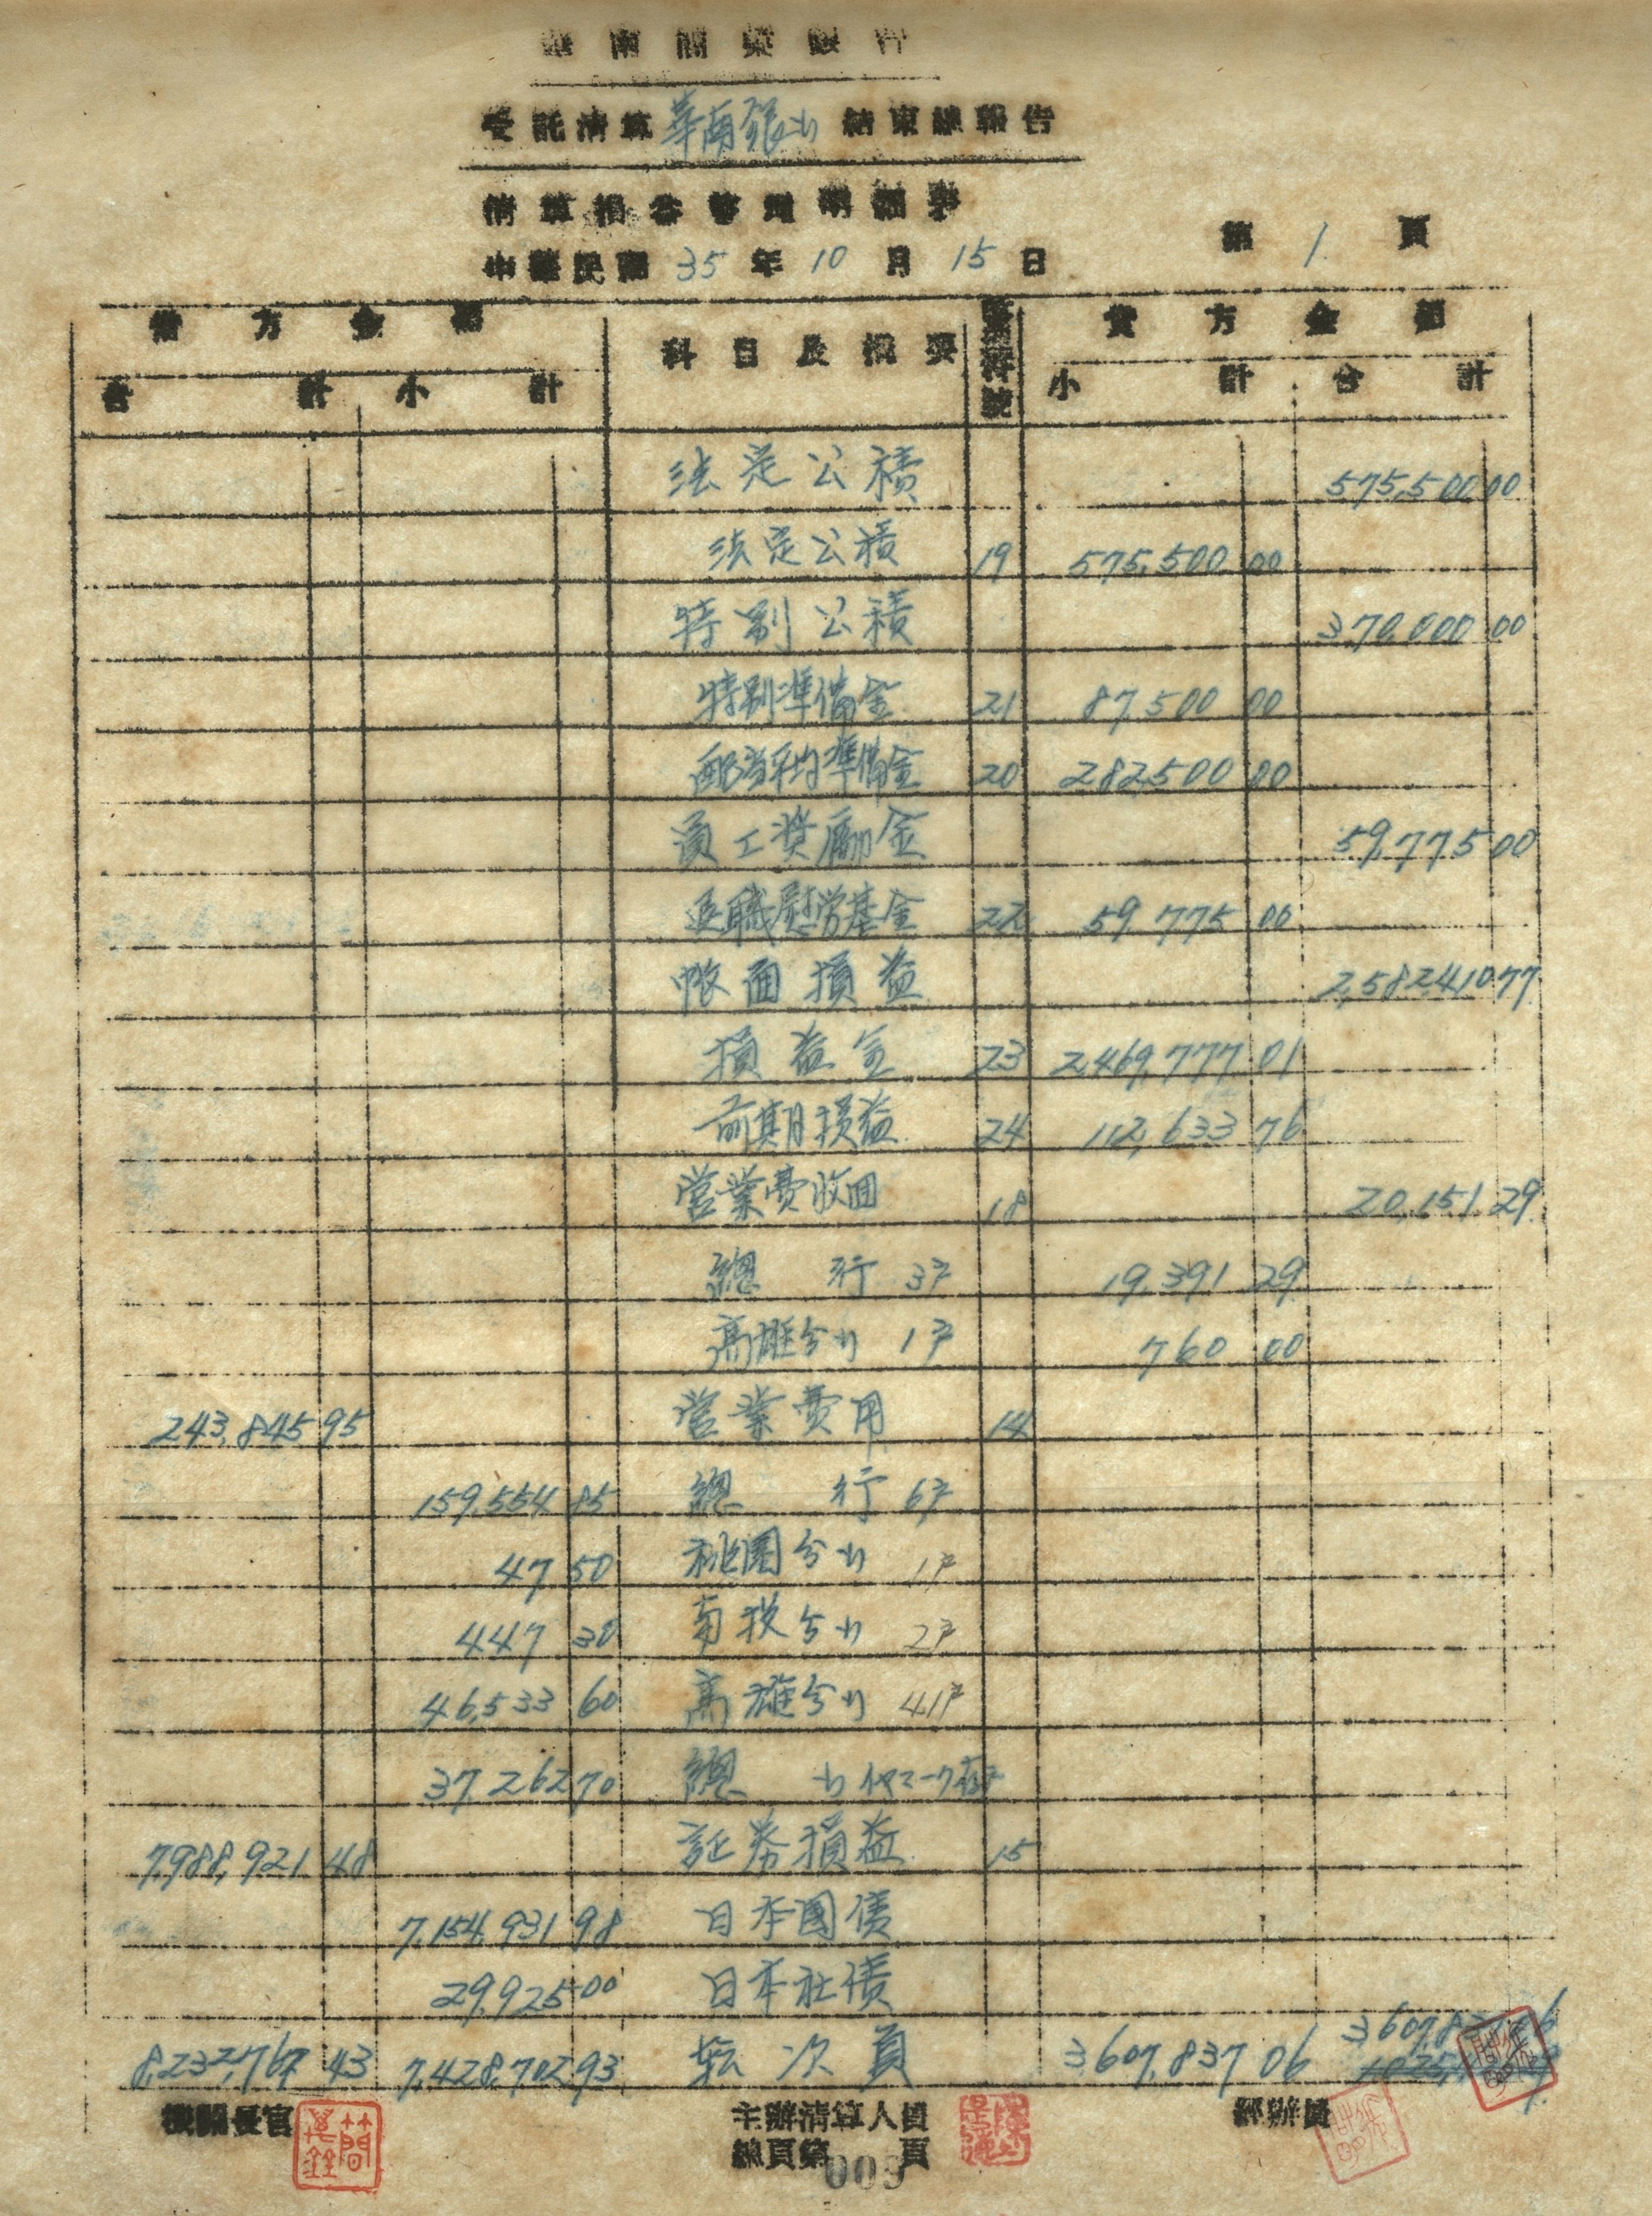 華南商業銀行
受託清算華南銀行結束總報告
清算損益整理明細表
中華民國35年10月15日 第1頁
借方金額 科目及摘要 貸方金額
合計 小計 小計 合計
法定公積 575,500.00
法定公積 19 575,500 00
特別公積 370,000 00
特別準備金 21 87,500 00
配当平均準備金 20 282,500 00
員工奬勵金 59,775 00
退職慰労基金 22 59,775 00
帳面損益 2,582,410.77
損益金 23 2,469,777 01
前期損益 24 112,633 76
営業費收回 18 20,151 29
總行 3戸 19,391 29
高雄分行 1戸 760 00
243,845 95 営業費用 14
159,554 85 總行 6戸
47 50 桃園分行 1戸
447 30 南投分行 2戸
46,533 60 高雄分行 41戸
37,262 70 總行
7,988,921 48 証券損益 15
7,154,931 98 日本國債
29,925 00 日本社債
3,607,837 06
8,232,767 43 7,428,702 93 転次頁 3,607,837 06
機關長官 主辦清算人員 經辦員
總頁第009頁